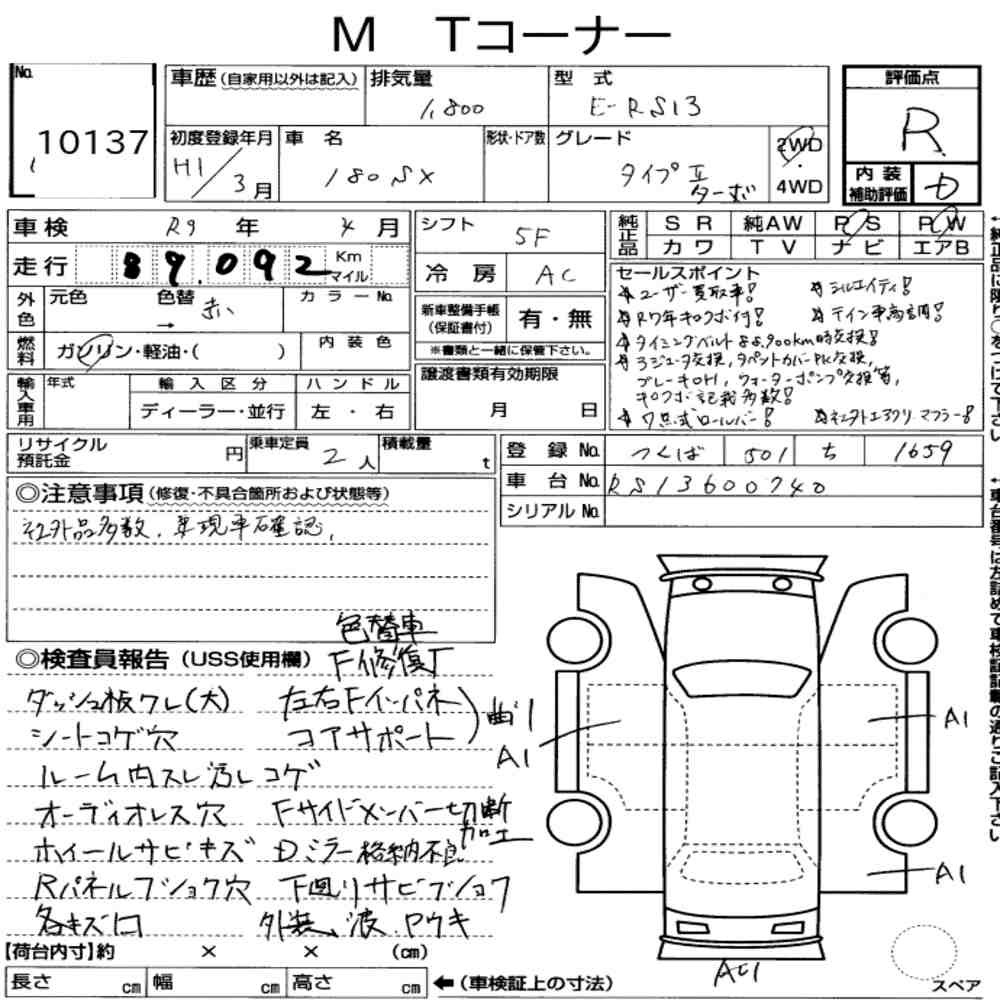 M Tコーナー
No. 10137
車歴 (自家用以外は記入) 排気量 1,800 型式 E-RS13
初度登録年月 H1/3月 車名 180SX 形状・ドア数 グレード タイプⅡ ターボ 2WD 4WD
評価点 R
内装補助評価 D
車検 R9年 4月
走行 89,092 Km マイル
外色 元色 色替 → 赤い カラーNo.
燃料 ガソリン・軽油・( ) 内装色
輸入車用 年式 輸入区分 ディーラー・並行 ハンドル 左・右
シフト 5F
冷房 AC
新車整備手帳(保証書付) 有・無
※書類と一緒に保管下さい。
譲渡書類有効期限 月 日
純正品 SR 純AW PS PW
カワ TV ナビ エアB
セールスポイント
ユーザー買取車! シルエイティ!
R7年キロクボ付! テイン車高調!
タイミングベルト88,900km時交換!
ラジュータ交換,タペットカバーPK交換,
ブレーキOH,ウォーターポンプ交換等,
キロクボ記載多数!
7点式ロールバー! 社外エアクリ マフラー!
リサイクル預託金 円 乗車定員 2人 積載量 t
登録No. つくば 501 ち 1659
車台No. RS13600740
シリアルNo.
◎注意事項 (修復・不具合箇所および状態等)
社外品多数,要現車確認,
◎検査員報告 (USS使用欄)
色替車
F修復歴
ダッシュ板ワレ(大) 左右Fインパネ
シートコゲ穴 コアサポート) 曲り
ルーム内スレ汚レコゲ
オーディオレス穴 Fサイドメンバー切断加工
ホイールサビキズ Dミラー格納不良
Rパネルプショク穴 下廻りサビプショク
各キズ凹 外装、波、ウキ
A1
A1
A1
AC1
【荷台内寸】約 × × (cm)
長さ cm 幅 cm 高さ cm ←(車検証上の寸法)
スペア